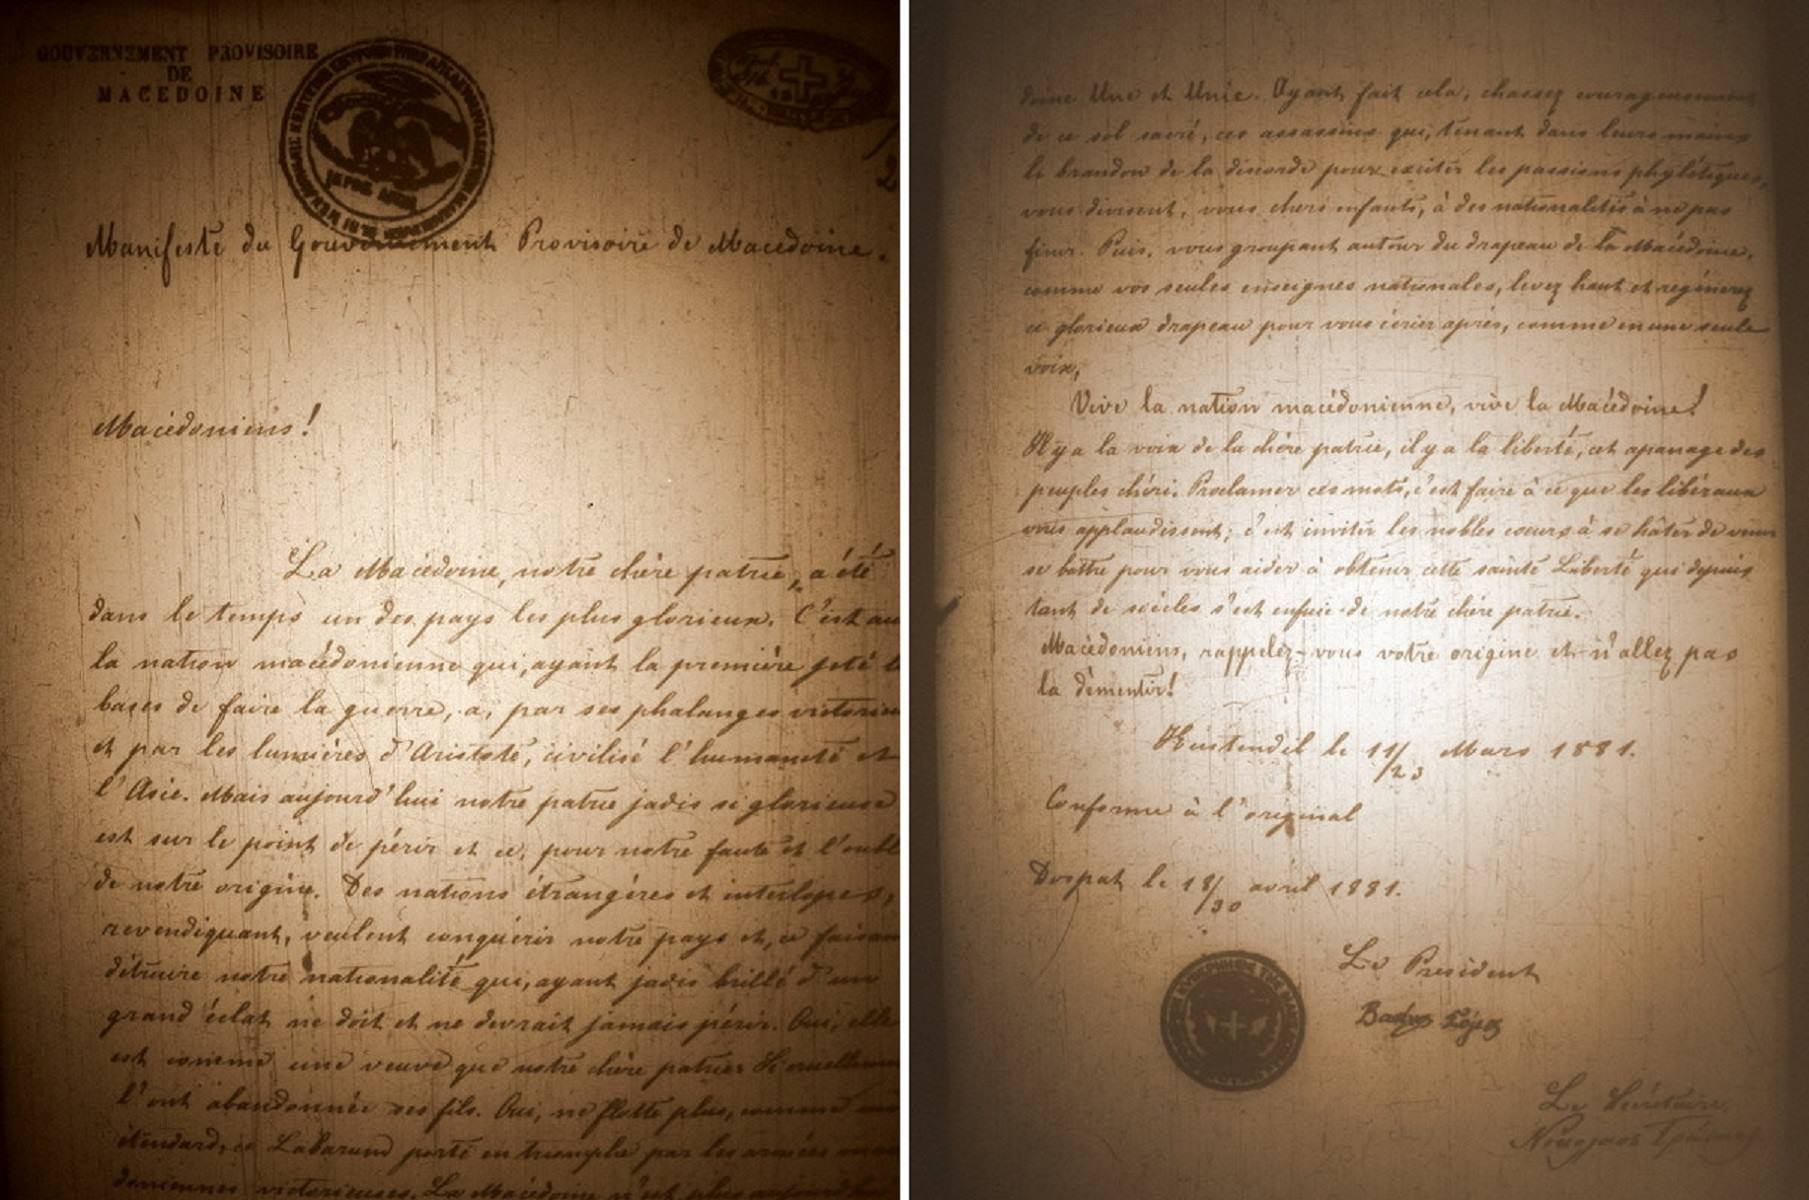 GOUVERNEMENT PROVISOIRE
DE
MACEDOINE
Manifeste du Gouvernement Provisoire de Macedoine.
Macédoniens!
La Macédoine, notre chère patrie, a été
dans le temps un des pays les plus glorieux. C'est au
la nation macédonienne qui, ayant la première jeté
bases de faire la guerre, a, par ses phalanges
et par les lumières d'Aristote, civilisé l'humanité et
l'Asie. Mais aujourd'hui notre patrie jadis si glorieuse
est sur le point de périr et ce, pour notre faute et l'oubl
de notre origine. Des nations étrangères et interlopes,
revendiquant, veulent conquérir notre pays et, ce faisan
détruire notre nationalité qui, ayant jadis brillé d'un
grand éclat ne doit et ne devrait jamais périr. Oui, elle
est comme une veuve que notre chère patrie
l'ont abandonnée ses fils. Oui, ne flotte plus, comme
étendard, ce Labarum porté en triomphe par les armées
victorieuses. La Macédoine n'est plus
doine Une et Unie. Ayant fait cela, chassez courageusement
de ce sol sacré, ces assassins qui, tenant dans leurs mains
le brandon de la discorde pour exciter les passions phylétiques,
vous divisent, vous chers enfants, à des nationalités à ne pas
finir. Puis, vous groupant autour du drapeau de la Macédoine,
comme vos seules enseignes nationales, levez haut et regénérez
ce glorieux drapeau pour vous écrier après, comme en une seule
voix,
Vive la nation macédonienne, vive la Macédoine!
Il y a la voix de la chère patrie, il y a la liberté, cet apanage des
peuples chéri. Proclamer ces mots, c'est faire à ce que les libéraux
vous applaudissent; c'est inviter les nobles cœurs à se hâter de venir
se battre pour vous aider à obtenir cette sainte Liberté qui depuis
tant de siècles s'est enfuie de notre chère patrie.
Macédoniens, rappelez-vous votre origine et n'allez pas
la démentir!
Kustendil le 11/23 Mars 1881.
Conforme à l'original
Dospat le 18/30 avril 1881.
Le President
Le Secrétaire